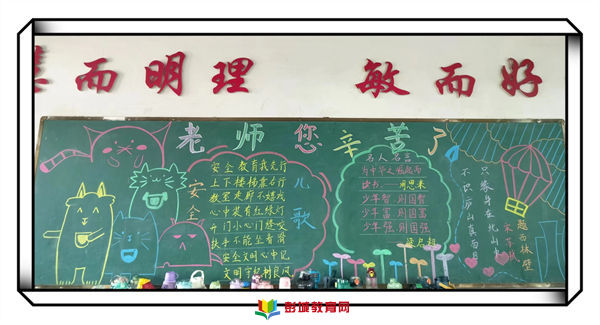 而明理 敏而好
老师您辛苦了
安全
儿歌
安全教育我先行
上下楼梯靠右行
教室走廊不嬉戏
心中装有红绿灯
开门小心门挤
扶手不能坐着滑
安全文明心中记
文明守纪
名人名言
为中华之崛起而
读书——周恩来
少年智,则国智
少年富,则国富
少年强,则国强
梁启超
题西林壁
宋 苏轼
不识庐山真面目
只缘身在此山中
彭城教育网